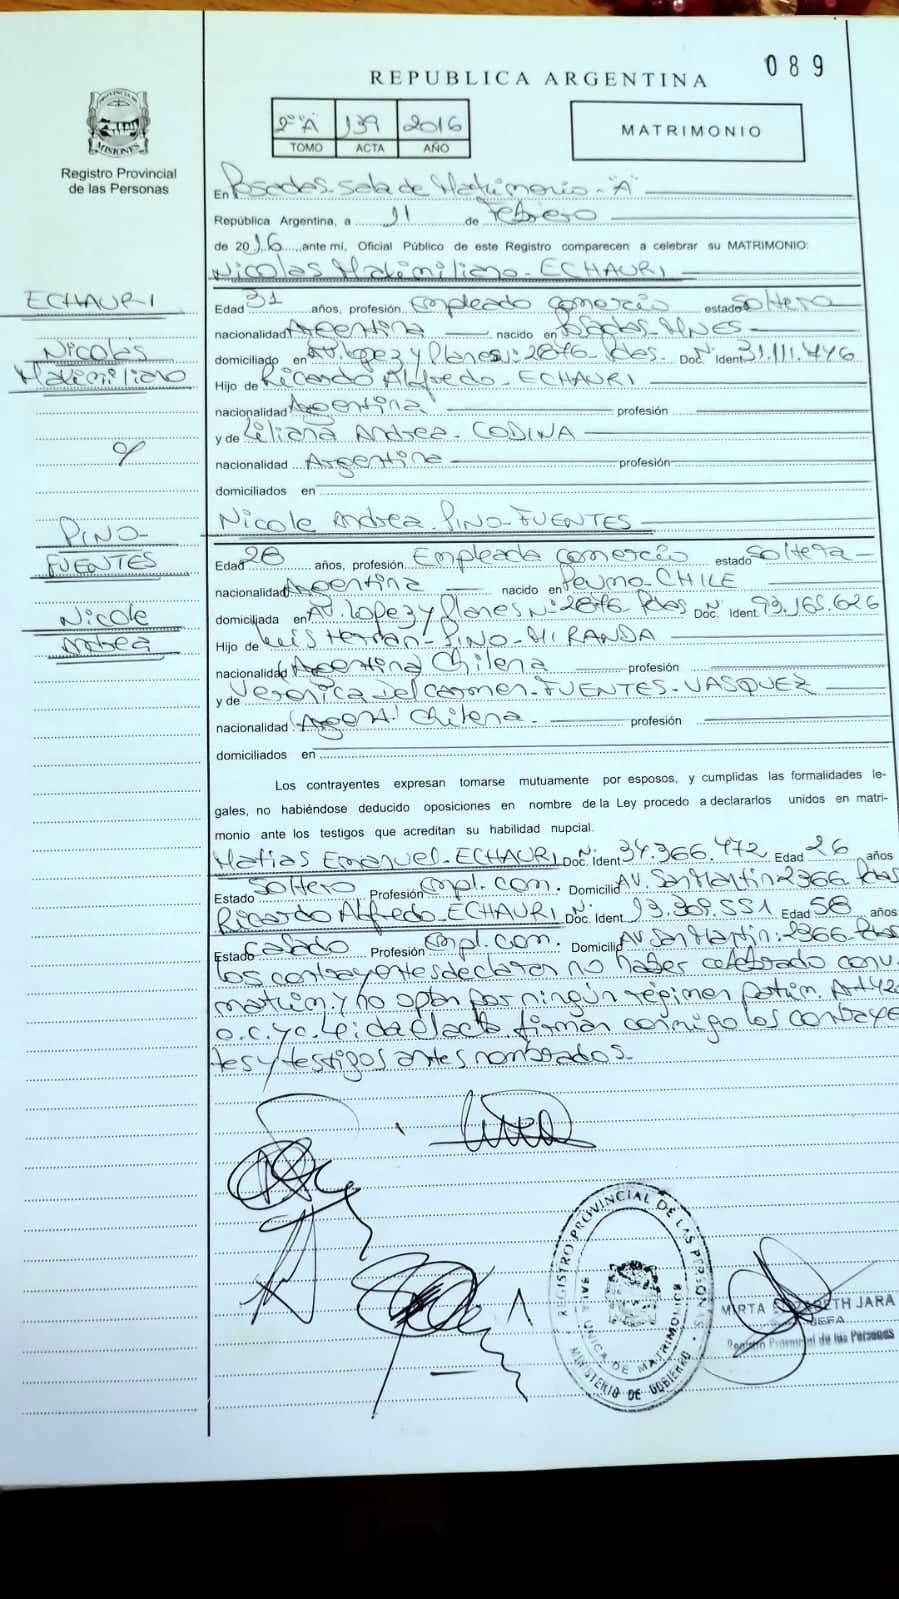 089
REPUBLICA ARGENTINA
PROVINCIA DE MISIONES
Registro Provincial
de las Personas
2º "A" 139 2016
TOMO ACTA AÑO
MATRIMONIO
En Posadas - Sala de Matrimonio - "A"
República Argentina, a 11 de Febrero
de 2016 ante mí, Oficial Público de este Registro comparecen a celebrar su MATRIMONIO:
Nicolas Maximiliano - ECHAURI
ECHAURI
Nicolás
Maximiliano
Edad 31 años, profesión Empleado comercio estado Soltero
nacionalidad Argentina nacido en Posadas - MNES
domiciliado en Av. Lopez y Planes Nº 2876 - Pdas. Doc. Ident. Nº 31.111.446
Hijo de Ricardo Alfredo - ECHAURI
nacionalidad Argentina profesión
y de Liliana Andrea - CODINA
nacionalidad Argentina profesión
domiciliados en
Nicole Andrea - PINO - FUENTES
PINO-
FUENTES
Nicole
Andrea
Edad 28 años, profesión Empleada comercio estado Soltera
nacionalidad Argentina nacido en Peumo - CHILE
domiciliada en Av. Lopez y Planes Nº 2876 Pdas Doc. Ident. Nº 93.165.626
Hijo de Luis Hernan - PINO - MIRANDA
nacionalidad (Argentina) Chilena profesión
y de Veronica Del Carmen - FUENTES - VASQUEZ
nacionalidad (Argent.) Chilena. profesión
domiciliados en
Los contrayentes expresan tomarse mutuamente por esposos, y cumplidas las formalidades le-
gales, no habiéndose deducido oposiciones en nombre de la Ley procedo a declararlos unidos en matri-
monio ante los testigos que acreditan su habilidad nupcial.
Matias Emanuel - ECHAURI Doc. Ident. Nº 34.366.472 Edad 26 años
Estado Soltero Profesión Empl. com. Domicilio AV. San Martin 2366 Pdas
Ricardo Alfredo - ECHAURI Doc. Ident. Nº 13.369.551 Edad 58 años
Estado Casado Profesión Empl. com. Domicilio AV San Martin: 2366 Pdas
los contrayentes declaran no haber celebrado conv.
matrim. y no optan por ningún régimen patrim. Art 42
o. c. y c. Leida el acta firman conmigo los contrayen
tes y testigos antes nombrados.
REGISTRO PROVINCIAL DE LAS PERSONAS
UNICA DE MATRIMONIOS
MINISTERIO DE GOBIERNO
MIRTA JARA
JEFA
Registro Provincial de las Personas